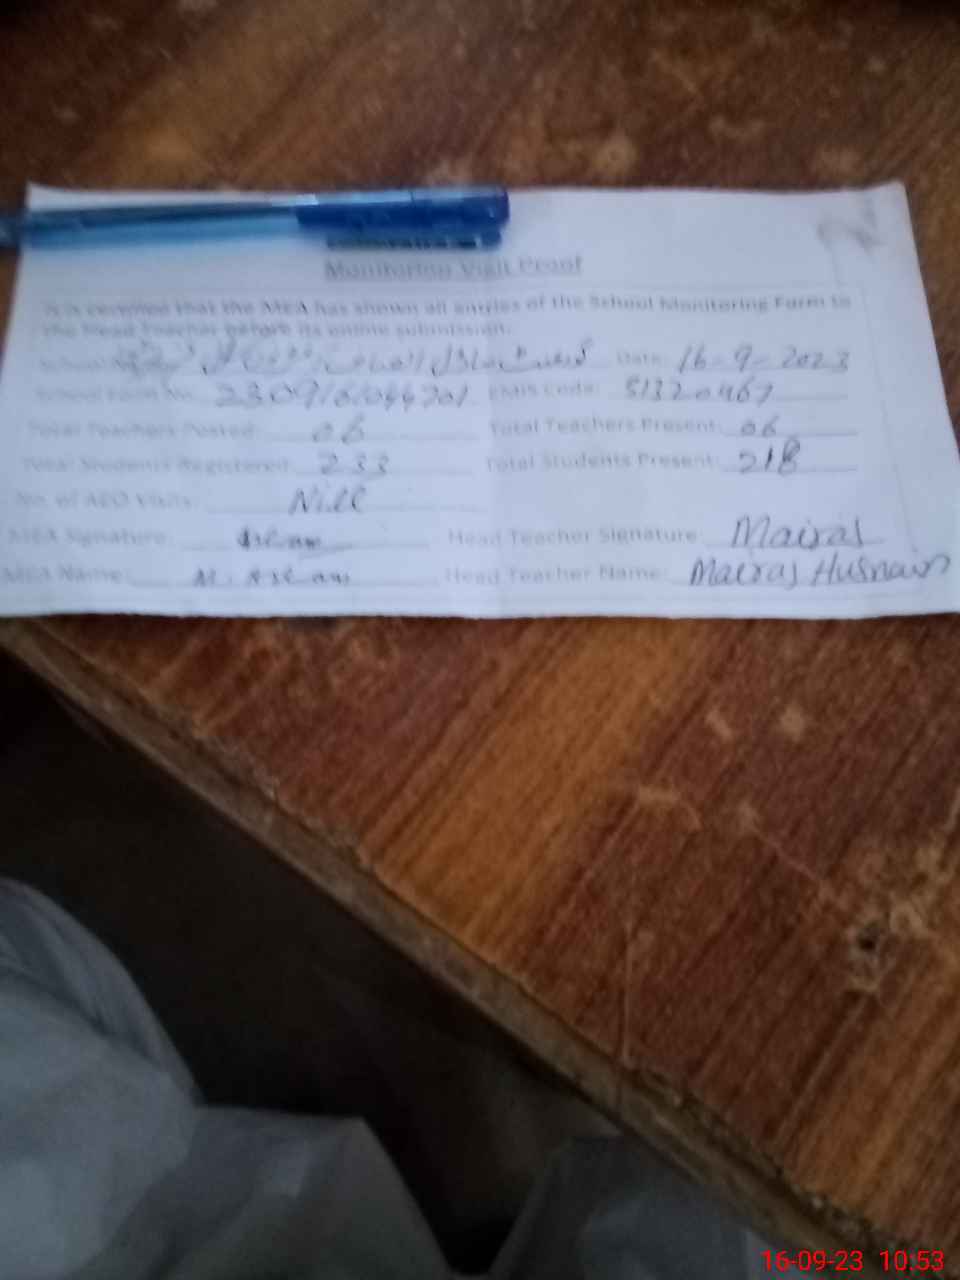 Monitoring Visit Proof
It is certified that the MEA has shown all entries of the School Monitoring Form to
the Head Teacher before its online submission.
School Date: 16-9-2023
School Form No. EMIS Code: 51320467
Total Teachers Posted: 06 Total Teachers Present: 06
Total Students Registered: 233 Total Students Present: 218
No. of AEO Visits: Nill
MEA Signature: Aslam Head Teacher Signature: Mairaj
MEA Name: M. Aslam Head Teacher Name: Mairaj Husnain
16-09-23 10:53